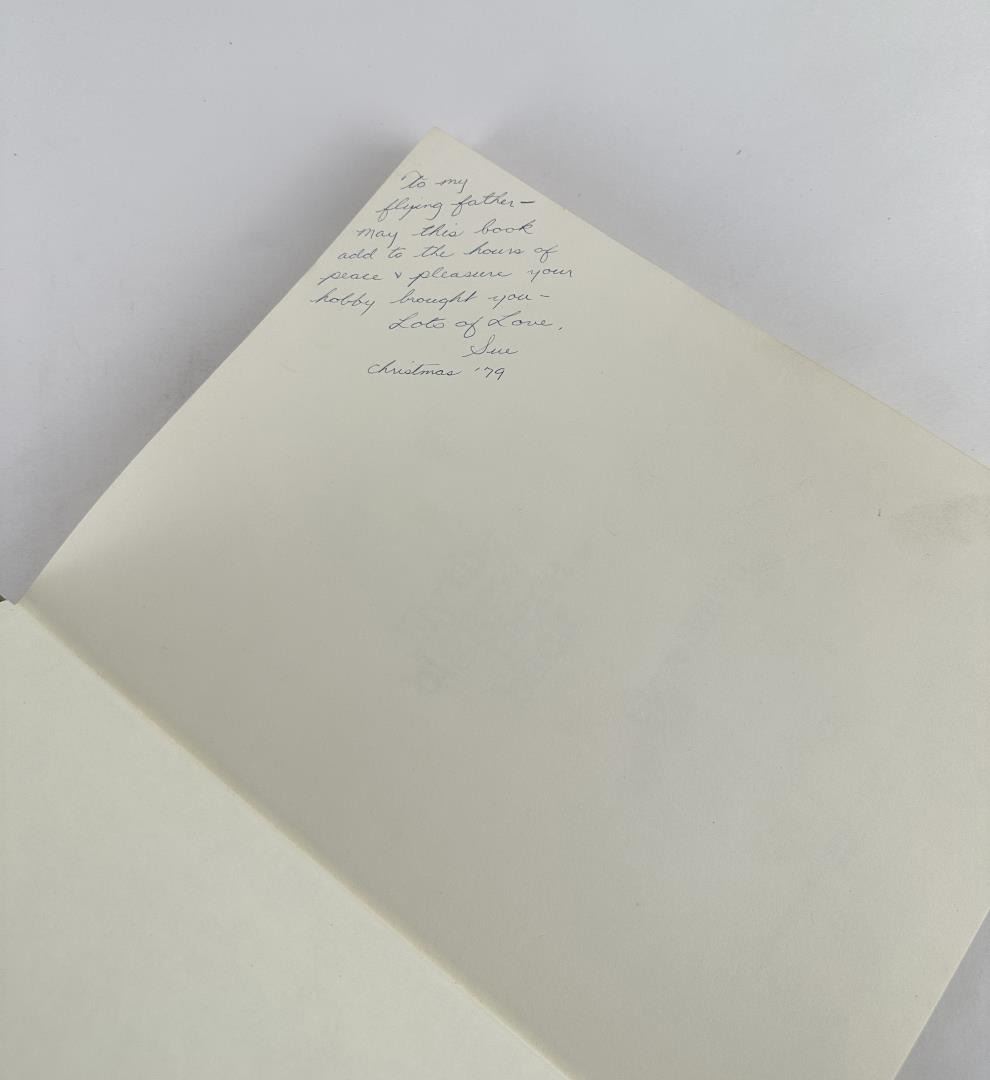 To my
flying father—
may this book
add to the hours of
peace & pleasure your
hobby brought you—
Lots of Love,
Sue
Christmas '79